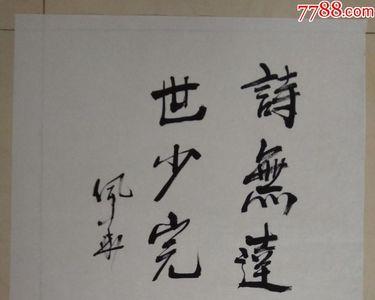 7788.com
詩無達
世少完